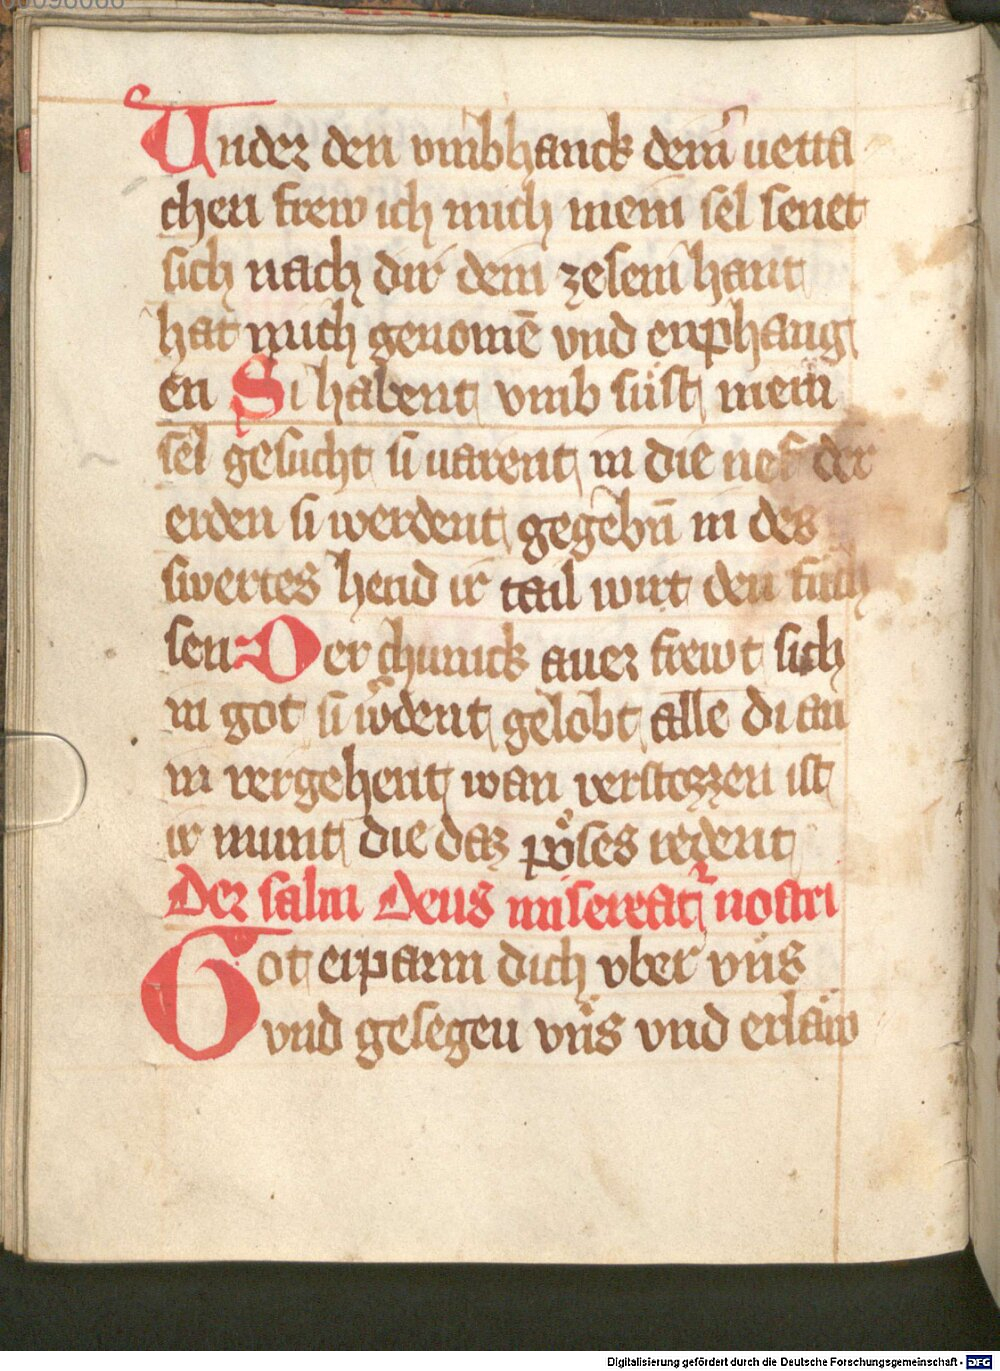 Vnder den vmbhanck deinr uetta
chen frew ich mich mein sel senet
sich nach dir dein zesem hant
hat mich genomē vnd enphang
en Si habent vmb süst mein
sel gesucht si uarent in die nef der
erden si werdent gegebn̄ in des
swertes hend ir tail wirt den füch
sen Der chunick auer frewt sich
in got si wdent gelobt alle di an
in vergehent wan verstozzen ist
ir munt die daz pöses redent
Der salm Deus misereatr nostri
Got erparm dich vber vns
vnd gesegen vns vnd erläw
Digitalisierung gefördert durch die Deutsche Forschungsgemeinschaft - DFG